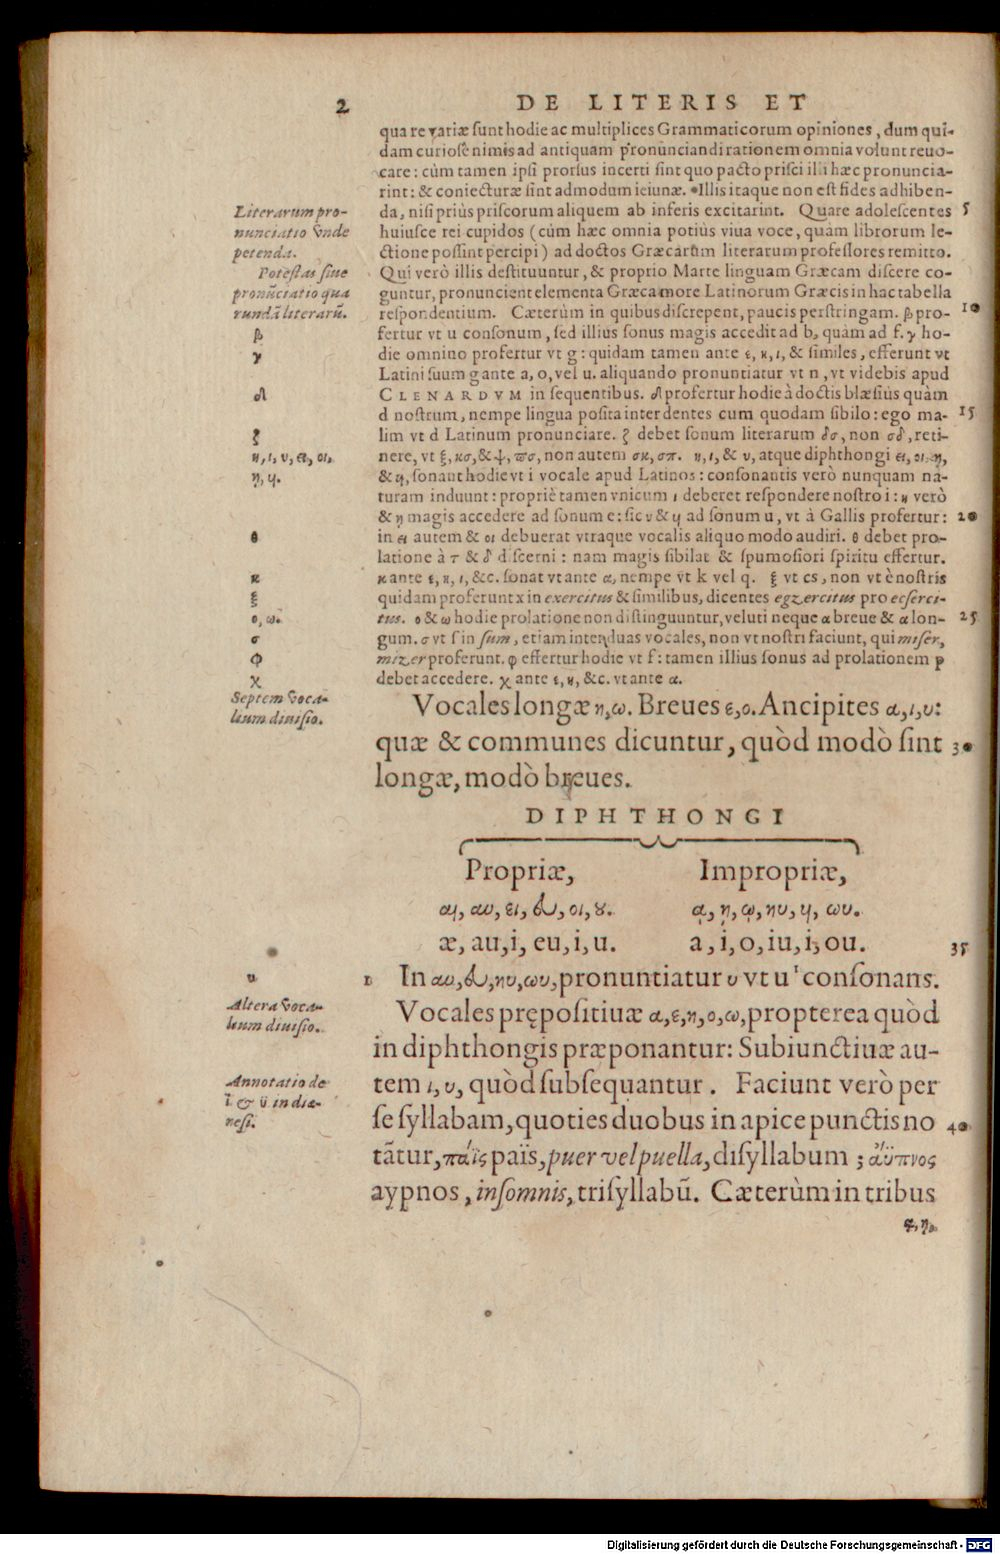 2 DE LITERIS ET
qua re variæ ſunt hodie ac multiplices Grammaticorum opiniones, dum qui-
dam curioſè nimis ad antiquam pronunciandi rationem omnia volunt reuo-
care: cùm tamen ipſi prorſus incerti ſint quo pacto priſci illi hæc pronuncia-
rint: & coniecturæ ſint admodum ieiunæ. Illis itaque non eſt fides adhiben-
Literarum pro- da, niſi priùs priſcorum aliquem ab inferis excitarint. Quare adoleſcentes 5
nunciatio vnde huiuſce rei cupidos (cùm hæc omnia potiùs viua voce, quàm librorum le-
petenda. ctione poſſint percipi) ad doctos Græcarũm literarum profeſſores remitto.
Poteſtas ſiue Qui verò illis deſtituuntur, & proprio Marte linguam Græcam diſcere co-
pronũciatio qua guntur, pronuncient elementa Græca more Latinorum Græcis in hac tabella
rundã literarũ. reſpondentium. Cæterùm in quibus diſcrepent, paucis perſtringam. β pro- 10
β fertur vt u conſonum, ſed illius ſonus magis accedit ad b, quàm ad f. γ ho-
γ die omnino profertur vt g: quidam tamen ante ε, κ, ι, & ſimiles, efferunt vt
Latini ſuum g ante a, o, vel u. aliquando pronuntiatur vt n, vt videbis apud
δ CLENARDVM in ſequentibus. δ profertur hodie à doctis blæſiùs quàm
d noſtrum, nempe lingua poſita inter dentes cum quodam ſibilo: ego ma- 15
ζ lim vt d Latinum pronunciare. ζ debet ſonum literarum δσ, non σδ, reti-
η, ι, υ, ει, οι, nere, vt ξ, κσ, & ψ, πσ, non autem σκ, σπ. η, ι, & υ, atque diphthongi ει, οι, ῃ,
ῃ, υι. & υι, ſonant hodie vt i vocale apud Latinos: conſonantis verò nunquam na-
turam induunt: propriè tamen vnicum ι deberet reſpondere noſtro i: η verò
& ῃ magis accedere ad ſonum e: ſic υ & υι ad ſonum u, vt à Gallis profertur: 20
θ in ει autem & οι debuerat vtraque vocalis aliquo modo audiri. θ debet pro-
latione à τ & δ diſcerni: nam magis ſibilat & ſpumoſiori ſpiritu effertur.
κ κ ante ε, η, ι, &c. ſonat vt ante α, nempe vt k vel q. ξ vt cs, non vt è noſtris
ξ quidam proferunt x in exercitus & ſimilibus, dicentes egzercitus pro ecſerci-
ο, ω. tus. ο & ω hodie prolatione non diſtinguuntur, veluti neque α breue & α lon- 25
σ gum. σ vt ſ in ſum, etiam inter duas vocales, non vt noſtri faciunt, qui miſer,
φ mizer proferunt. φ effertur hodie vt f: tamen illius ſonus ad prolationem p
χ debet accedere. χ ante ε, η, &c. vt ante α.
Septem voca- Vocales longæ η, ω. Breues ε, ο. Ancipites α, ι, υ:
lium diuiſio. quæ & communes dicuntur, quòd modò ſint 30
longæ, modò breues.
DIPHTHONGI
Propriæ, Impropriæ,
αι, αυ, ει, ευ, οι, ȣ. ᾳ, ῃ, ῳ, ηυ, υι, ωυ.
æ, au, i, eu, i, u. a, i, o, iu, i, ou. 35
u In αυ, ευ, ηυ, ωυ, pronuntiatur υ vt u conſonans.
Altera voca- Vocales prępoſitiuæ α, ε, η, ο, ω, propterea quòd
lium diuiſio. in diphthongis præponantur: Subiunctiuæ au-
Annotatio de tem ι, υ, quòd ſubſequantur. Faciunt verò per
ï & ü in diæ- ſe ſyllabam, quoties duobus in apice punctis no 40
reſi. tãtur, πάϊς païs, puer vel puella, diſyllabum; ἄϋπνος
aypnos, inſomnis, triſyllabũ. Cæterùm in tribus
ᾳ, ῃ,
Digitalisierung gefördert durch die Deutsche Forschungsgemeinschaft - DFG